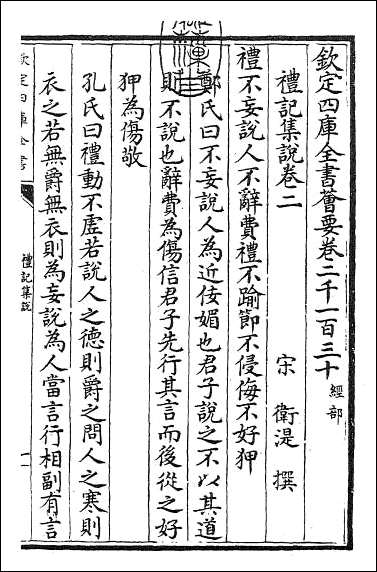 欽定四庫全書薈要卷二千一百三十 經部
禮記集說卷二
宋 衛湜 撰
禮不妄說人不辭費禮不踰節不侵侮不好狎
鄭氏曰不妄說人為近佞媚也君子說之不以其道
則不說也辭費為傷信君子先行其言而後從之好
狎為傷敬
孔氏曰禮動不虛若說人之德則爵之問人之寒則
衣之若無爵無衣則為妄說為人當言行相副有言
欽定四庫全書
禮記集說
一